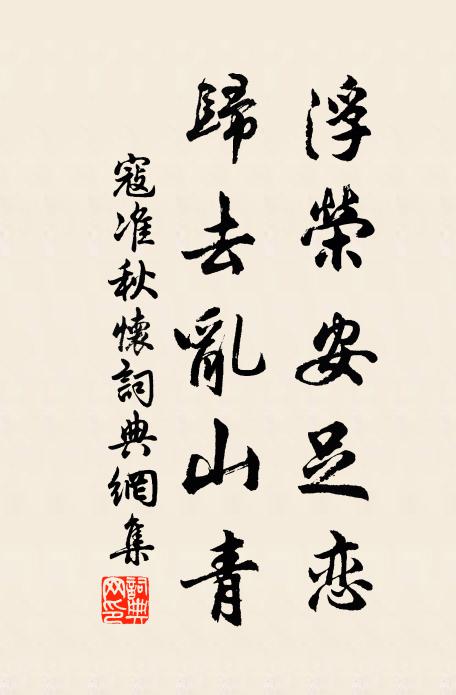 浮榮安足恋
歸去亂山青
寇准秋懷詞典網集
詞典网印